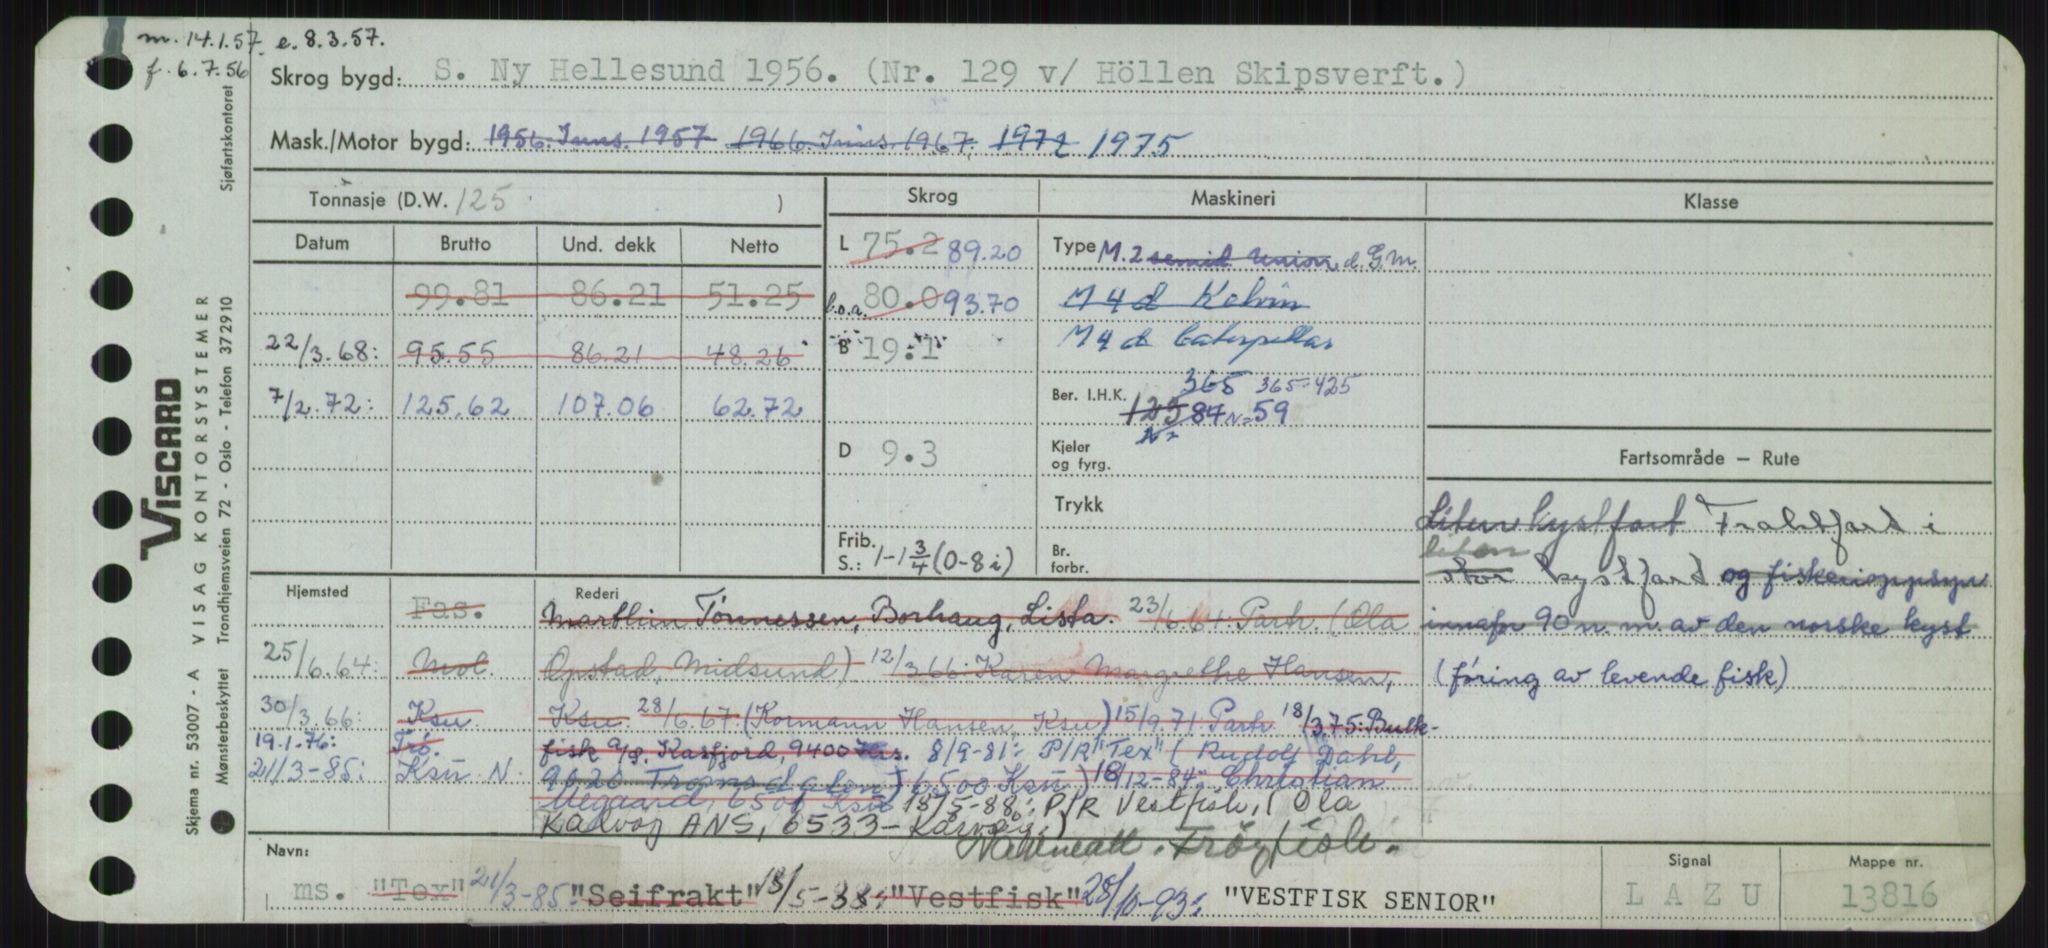 m. 14.1.57. e. 8.3.57.
f. 6.7.56
Skrog bygd: S. Ny Hellesund 1956. (Nr. 129 v/ Höllen Skipsverft.)
Mask./Motor bygd: 1956. Inns. 1957 1966. Inns. 1967. 1972 1975
Sjøfartskontoret
Tonnasje (D.W. 125 )
Skrog
Maskineri
Klasse
Datum Brutto Und. dekk Netto
L 75.2 89.20
Type M. 2 semid Union d. G.M.
99.81 86.21 51.25
l.o.a. 80.0 93.70
M 4 d Kelvin
22/3.68: 95.55 86.21 48.26
B 19.1
M 4 d Caterpillar
7/2.72: 125.62 107.06 62.72
Ber. I.H.K. 365 365-425
125 84 N=59
D 9.3
Kjeler
og fyrg.
Fartsområde – Rute
Trykk
Liten kystfart Fraktfart i
Frib.
S.: 1-1 3/4 (0-8i)
Br.
forbr.
liten
stor kystfart og fiskerioppsyn
innafor 90 n.m. av den norske kyst
(föring av levende fisk)
Hjemsted
Rederi
Fas. Marthin Tönnessen, Borhaug, Lista. 23/6.64: Partr. (Ola
25/6.64: Mol. Opstad, Midsund) 12/3.66: Karen Margrethe Hansen,
30/3.66: Ksu. Ksu. 28/6.67: (Kormann Hansen, Ksu) 15/9.71: Partr. 18/3.75: Bulk-
19.1.76: Trö. fisk a/s, Kasfjord, 9400 Hrs. 8/9-81: P/R "Tex" (Rudolf Dahl,
21/3-85: Ksu N: 9020 Tromsdalen) 6500 Ksu) 18/12-84: Christian
Aegaard, 6500 Ksu 13/5-88: P/R Vestfisk, (Ola
Kårvåg ANS, 6533 - Kårvåg.)
Navneatt. Fröyfisk.
Navn:
ms. "Tex" 21/3-85: "Seifrakt" 13/5-88: "Vestfisk" 28/10-93: "VESTFISK SENIOR"
Signal
L A Z U
Mappe nr.
13816
VISCARD
Skjema nr. 53007 - A VISAG KONTORSYSTEMER
Mønsterbeskyttet Trondhjemsveien 72 - Oslo - Telefon 372910